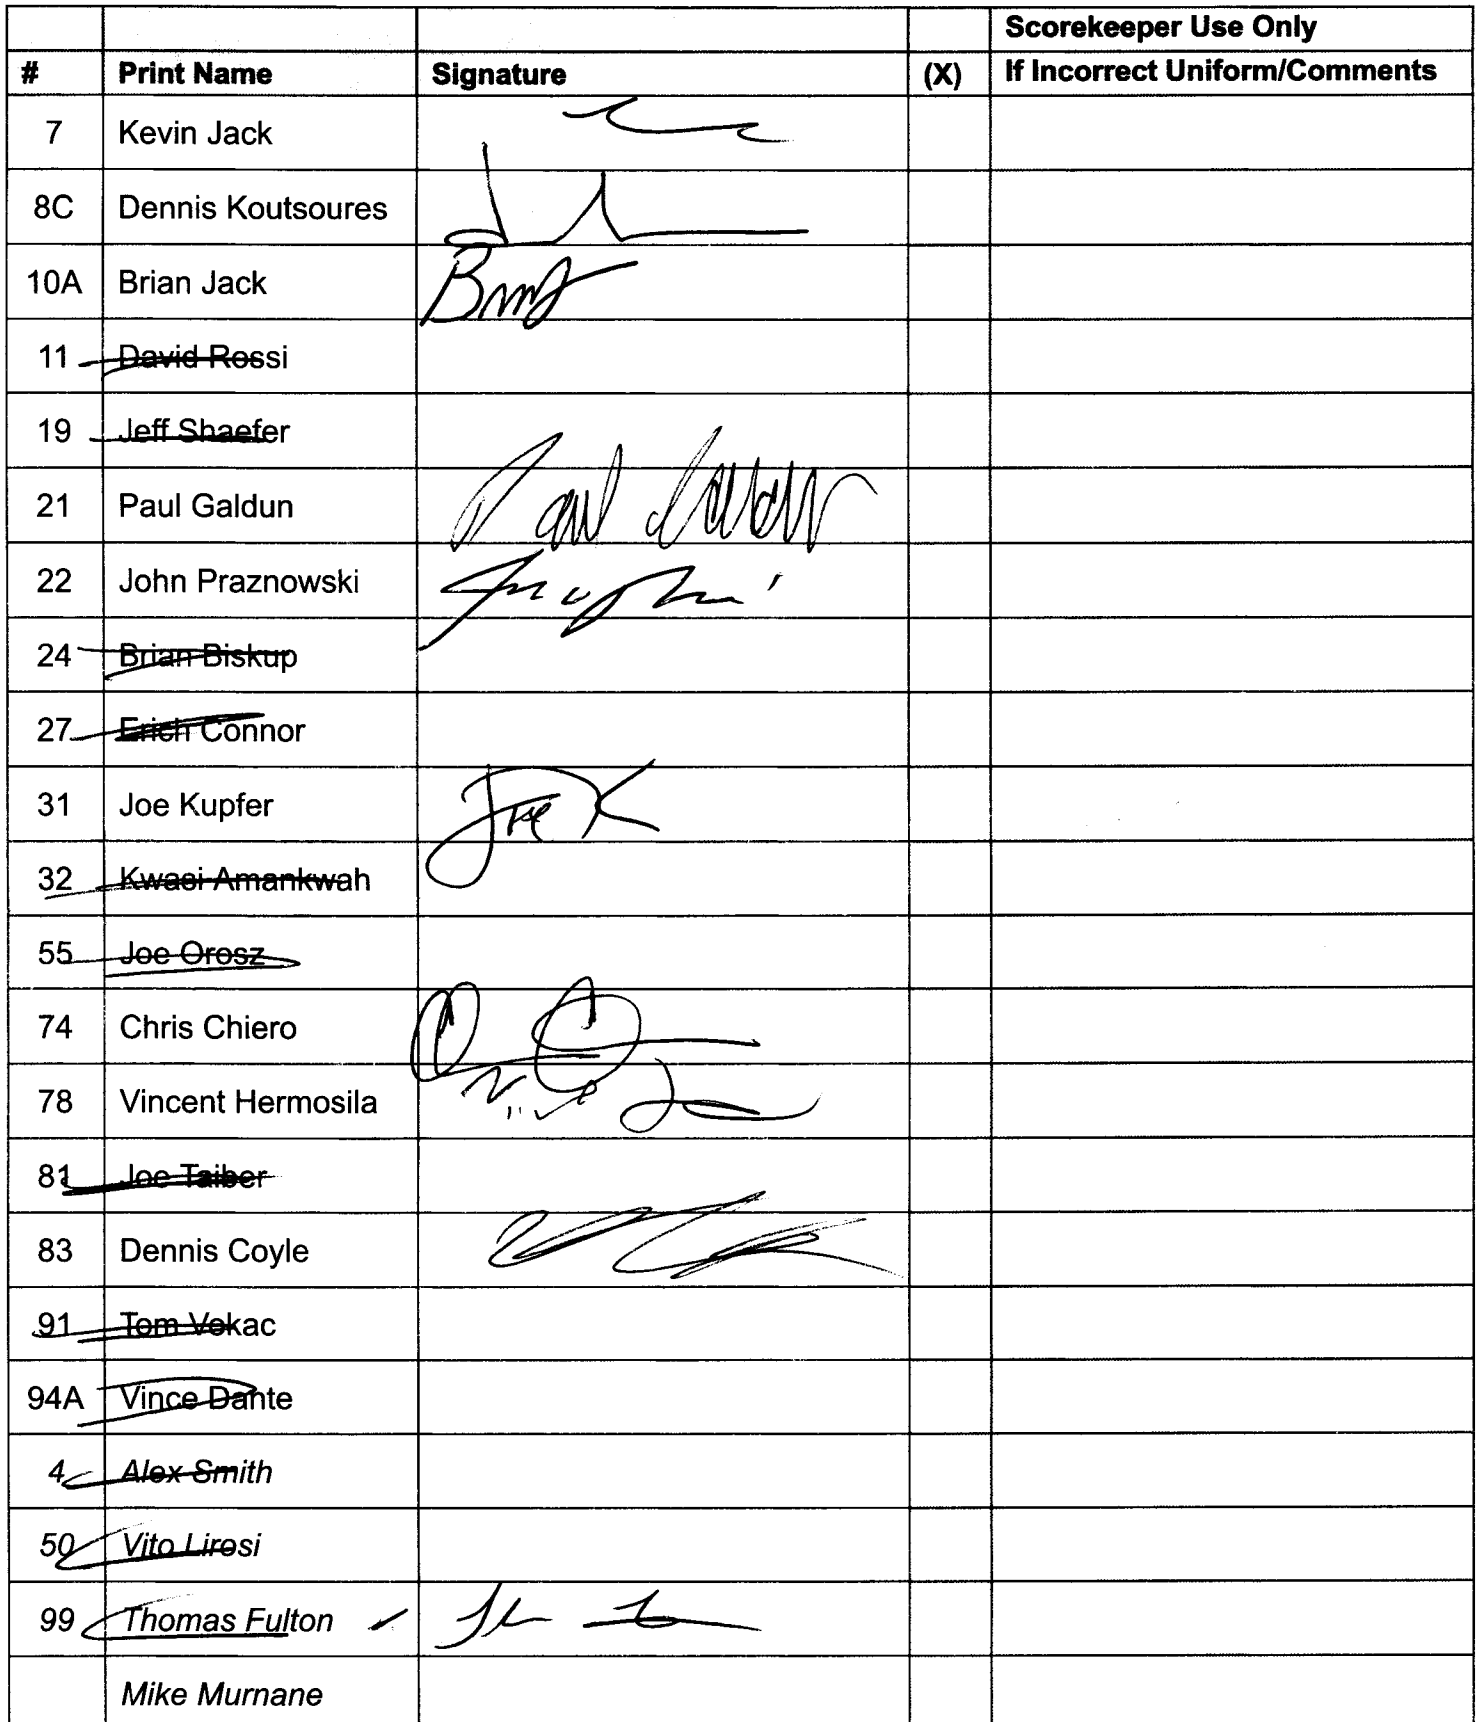 Scorekeeper Use Only
# Print Name Signature (X) If Incorrect Uniform/Comments
7 Kevin Jack
8C Dennis Koutsoures
10A Brian Jack
11 David Rossi
19 Jeff Shaefer
21 Paul Galdun Paul Galdun
22 John Praznowski
24 Brian Biskup
27 Erich Connor
31 Joe Kupfer Joe K
32 Kwasi Amankwah
55 Joe Orosz
74 Chris Chiero
78 Vincent Hermosila
81 Joe Taiber
83 Dennis Coyle
91 Tom Vokac
94A Vince Dante
4 Alex Smith
50 Vito Lirosi
99 Thomas Fulton
Mike Murnane